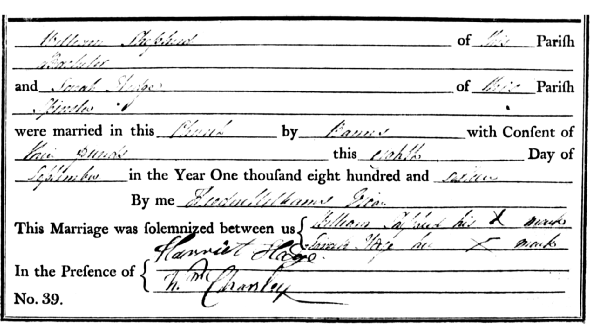 William Stephens of this Parish
Bachelor
and Sarah of this Parish
Spinster
were married in this Church by Banns with Consent of
this eighth Day of
September in the Year One thousand eight hundred and
By me Williams
This Marriage was solemnized between us { William his X mark
Sarah her X mark
In the Presence of { Harriet
Wm Chanley
No. 39.